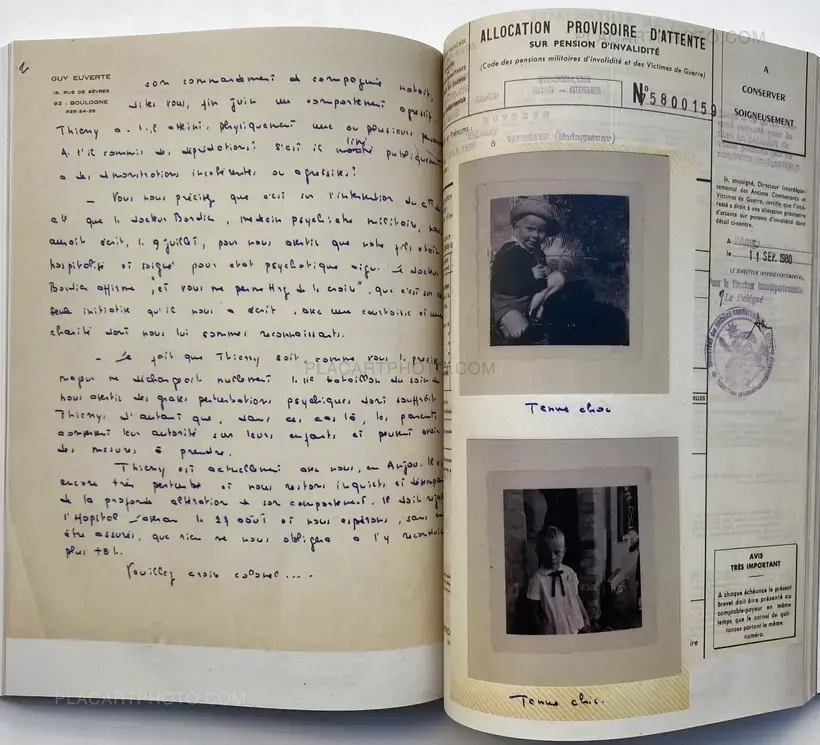 2
GUY EUVERTE
16, RUE DE SÈVRES
92 - BOULOGNE
825-24-25
son commandement de compagnie notait,
dites vous, fin juin un comportement agressif.
Thierry a-t-il atteint physiquement une ou plusieurs
A t'il commis des déprédations? S'est il livré
à des démonstrations incohérentes ou agressives?
- Vous nous précisez que c'est sur l'intervention du
que le docteur Bordier, médecin psychiatre militaire, nous
aurait écrit, le 9 juillet, pour nous avertir que notre fils était
hospitalisé et soigné pour état psychotique aigu. Le docteur
Bordier affirme "et vous me permettrez de le croire", que c'est sur sa
seule initiative qu'il nous a écrit, avec une courtoisie et une
charité dont nous lui sommes reconnaissants.
- Le fait que Thierry soit, comme vous le précisez
majeur ne déchargeait nullement le bataillon du soin de
nous avertir des graves perturbations psychiques dont souffrait
Thierry; d'autant que, dans ces cas là, les parents
conservent leur autorité sur leurs enfants et peuvent avoir
des mesures à prendre.
Thierry est actuellement avec nous, en Anjou. Il est
encore très perturbé et nous restons inquiets et
de la profonde altération de son comportement. Il doit
l'Hopital le 27 août et nous espérons, sans en
être assurés, que rien ne nous obligera à l'y reconduire
plus tôt.
Veuillez croire colonel....
ALLOCATION PROVISOIRE D'ATTENTE
SUR PENSION D'INVALIDITÉ
(Code des pensions militaires d'invalidité et des Victimes de Guerre)
HORS - GUERRE
N° 75800159
Prénoms:
EUVERTE
Thierry
à TANANARIVE (Madagascar)
Tenue choc
Tenue chic.
A
CONSERVER
SOIGNEUSEMENT
Je, soussigné, Directeur Interdépar-
temental des Anciens Combattants et
Victimes de Guerre, certifie que l'inté-
ressé a droit à une allocation provisoire
d'attente sur pension d'invalidité dont
détail ci-contre.
A PARIS
le 11 SEP. 1980
LE DIRECTEUR INTERDÉPARTEMENTAL,
Pour le Directeur Interdépartemental
Le Délégué
AVIS
TRÈS IMPORTANT
A chaque échéance le présent
brevet doit être présenté au
comptable-payeur en même
temps que le carnet de quit-
tances portant le même
numéro.
PLACARTPHOTO.COM
PLACARTPHOTO.COM
PLACARTPHOTO.COM